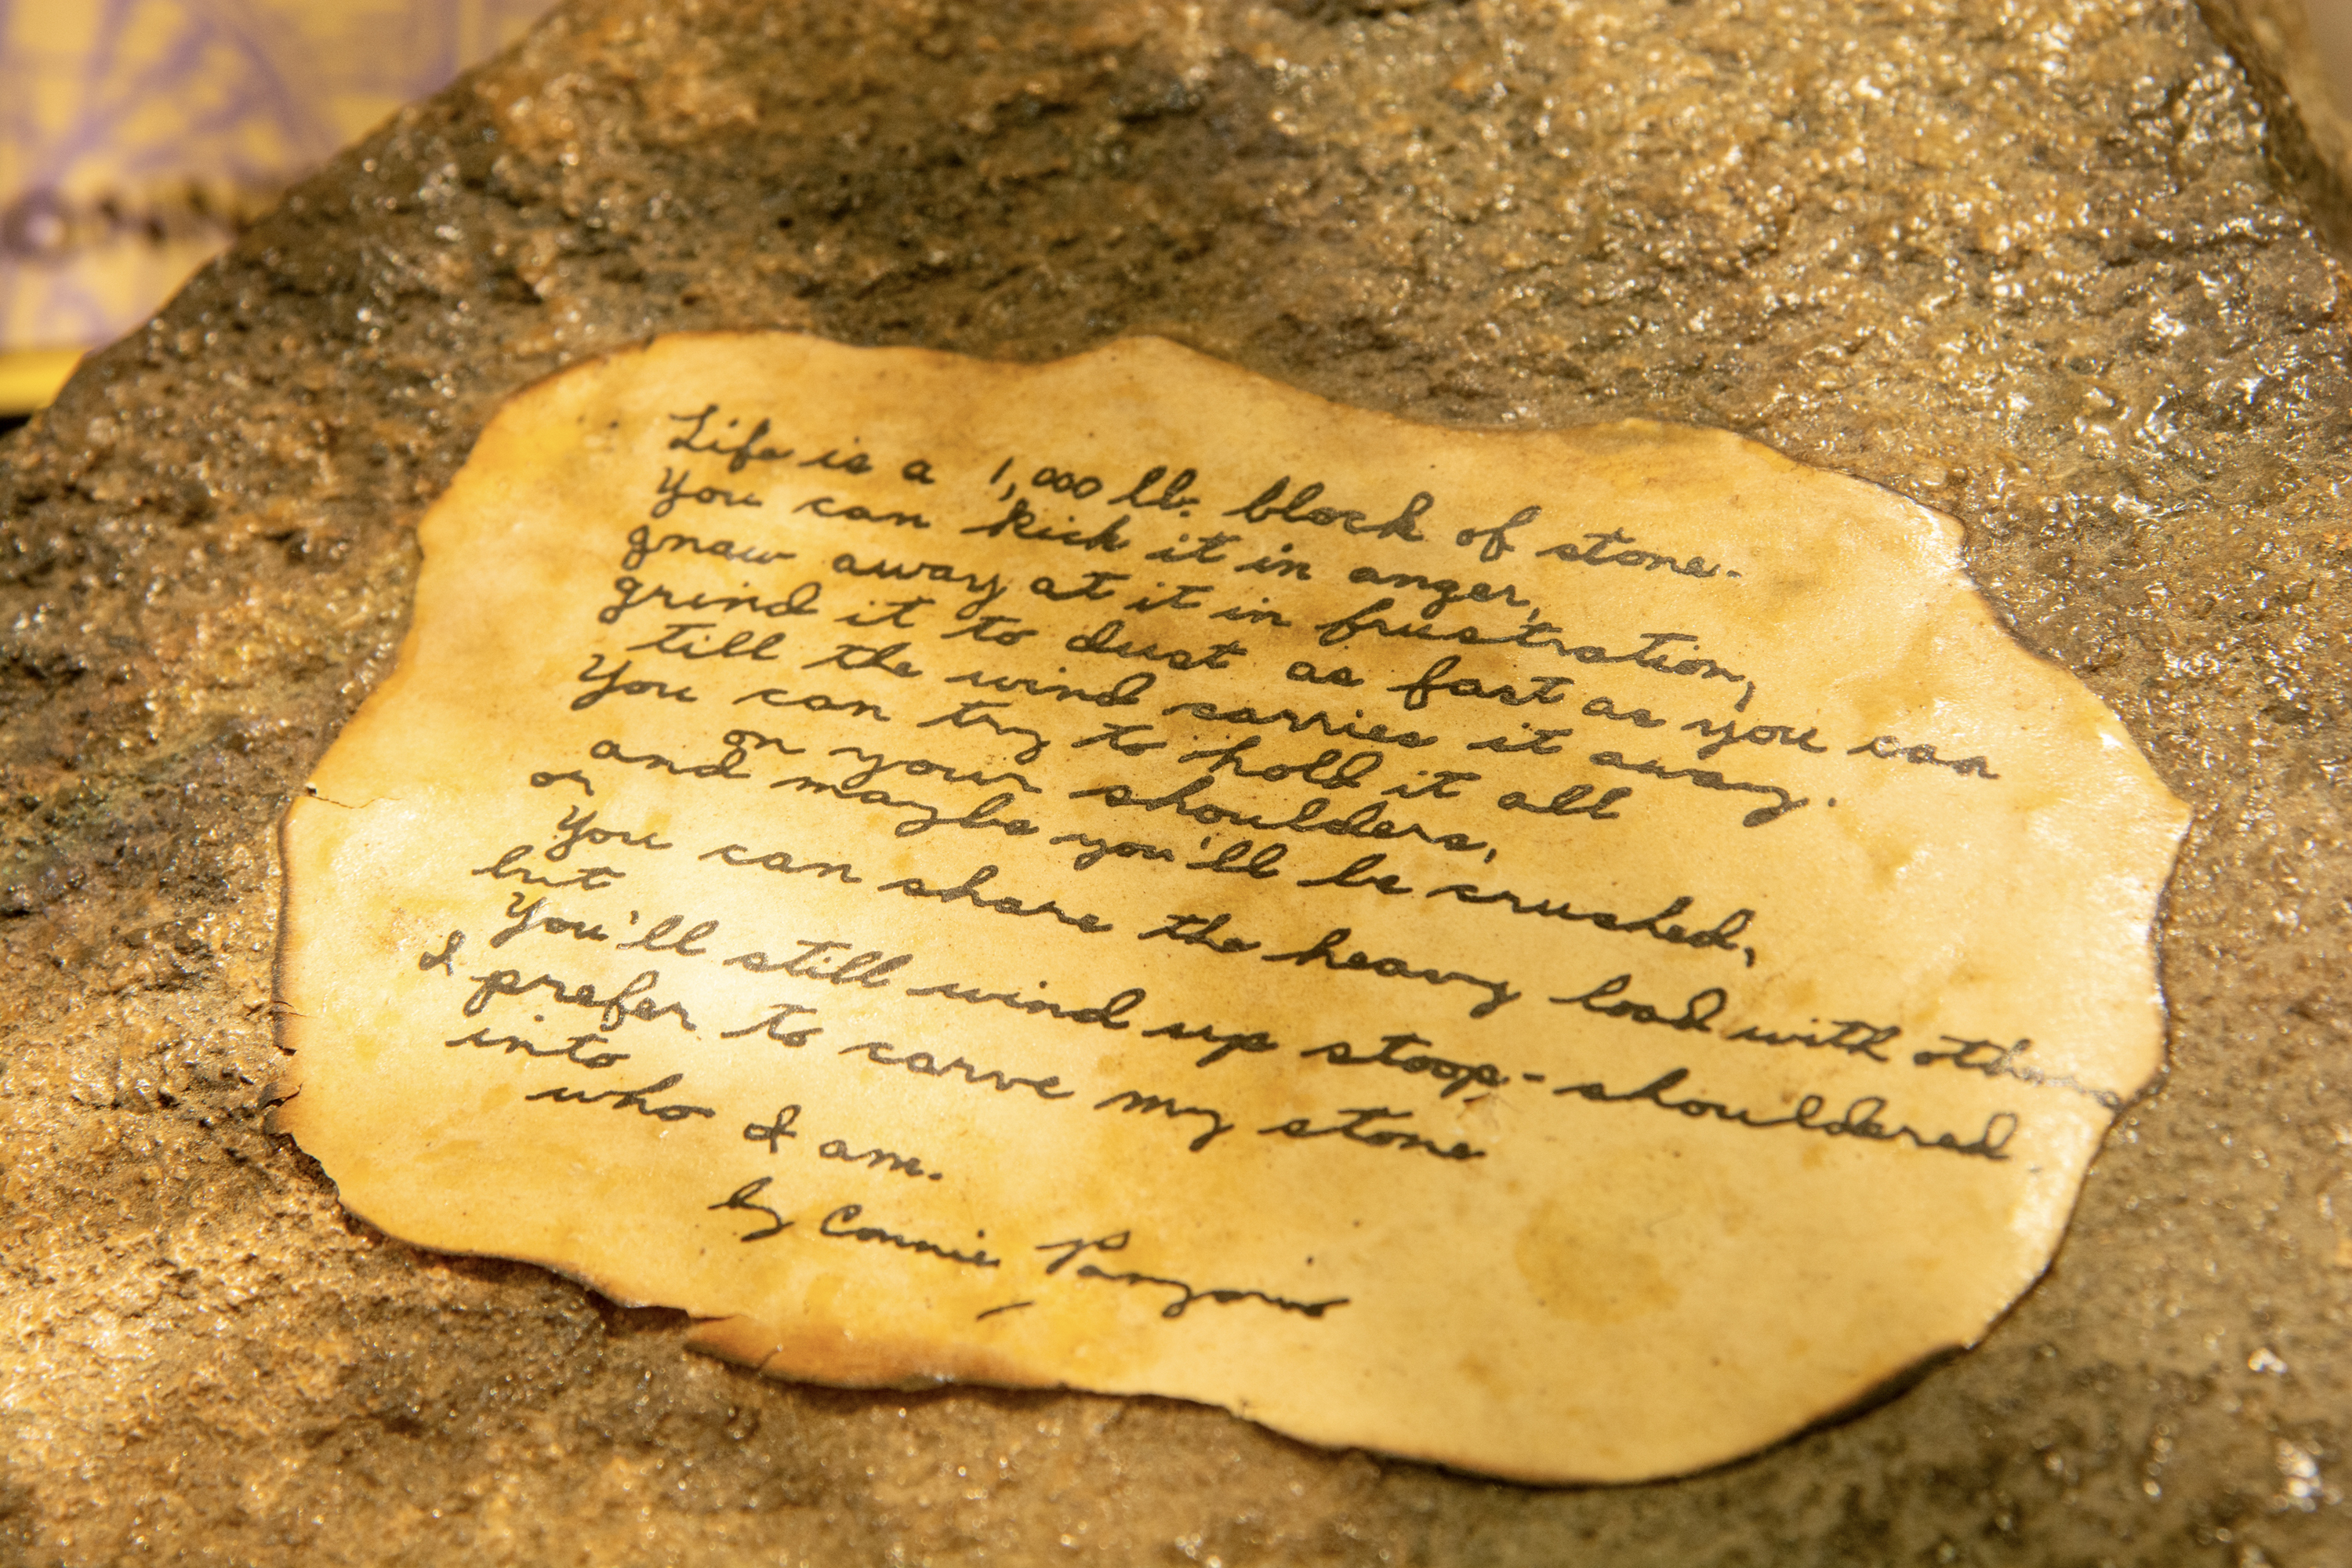 Life is a 1,000 lb. block of stone.
You can kick it in anger,
gnaw away at it in frustration,
grind it to dust as fast as you can
till the wind carries it away.
You can try to hold it all
on your shoulders,
and maybe you'll be crushed,
or
You can share the heavy load with others
but
You'll still wind up stoop-shouldered.
I prefer to carve my stone
into
who I am.
by Connie Panzarino